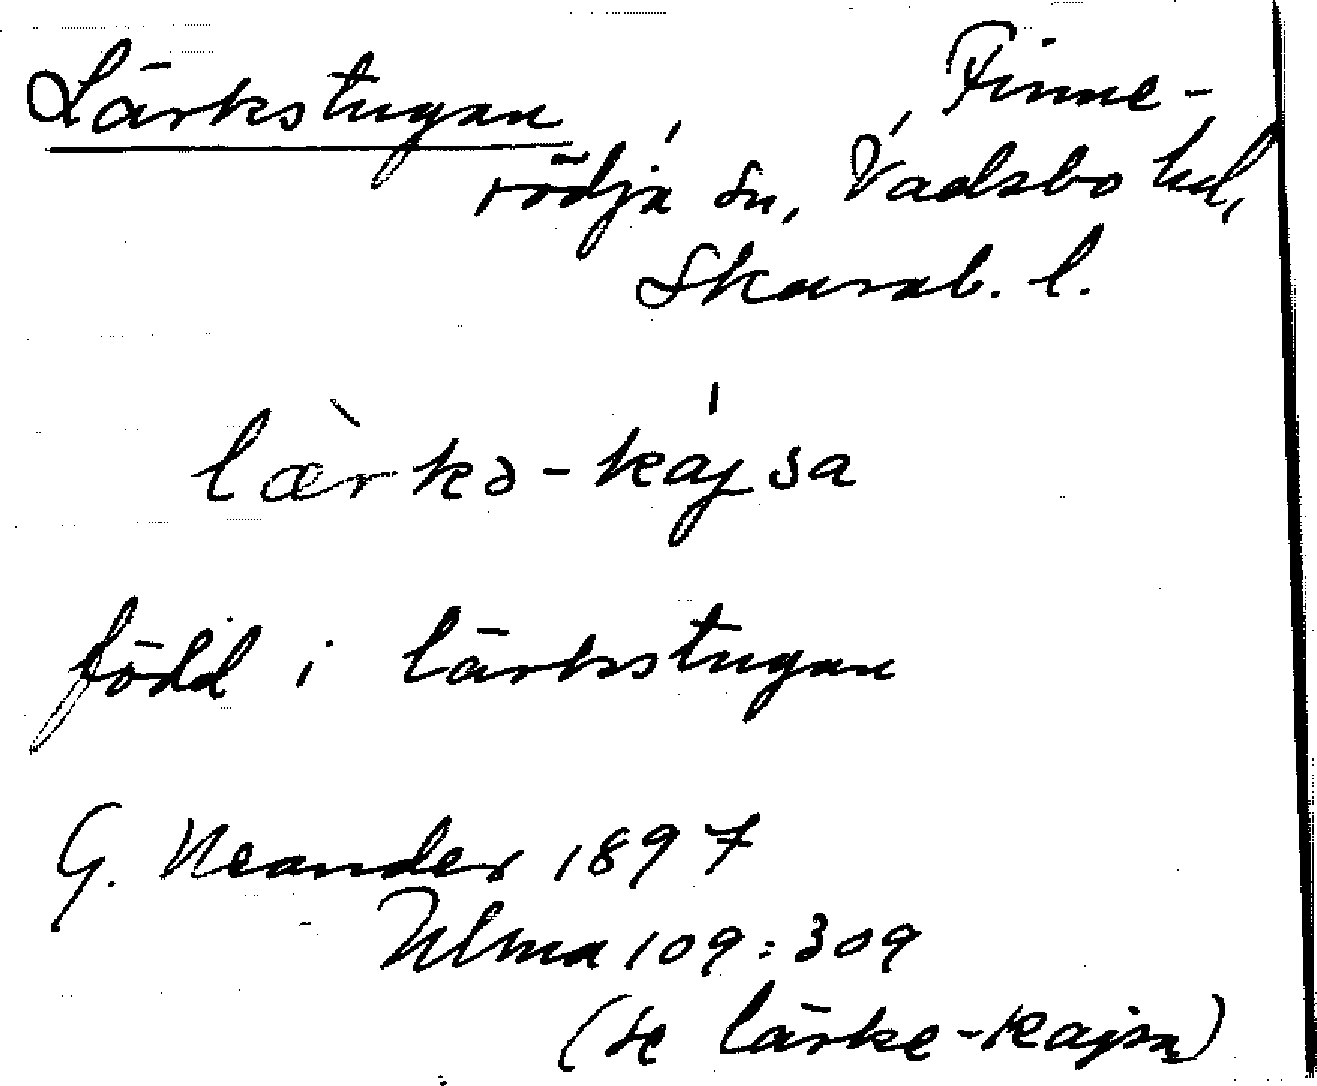 Lärkstugan Finne-
rödja sn, Vadsbo hd,
Skarab. l.
lær̀kə-kájsa
född i lärkstugan
G. Neander 1897
Ulma 109:309
(se lärke-kajsa)